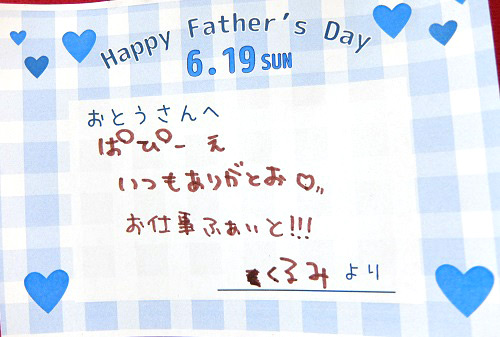 Happy Father's Day
6.19 SUN
おとうさんへ
ぱぴー え
いつもありがとお♡〃
お仕事ふぁいと!!!
くるみ より